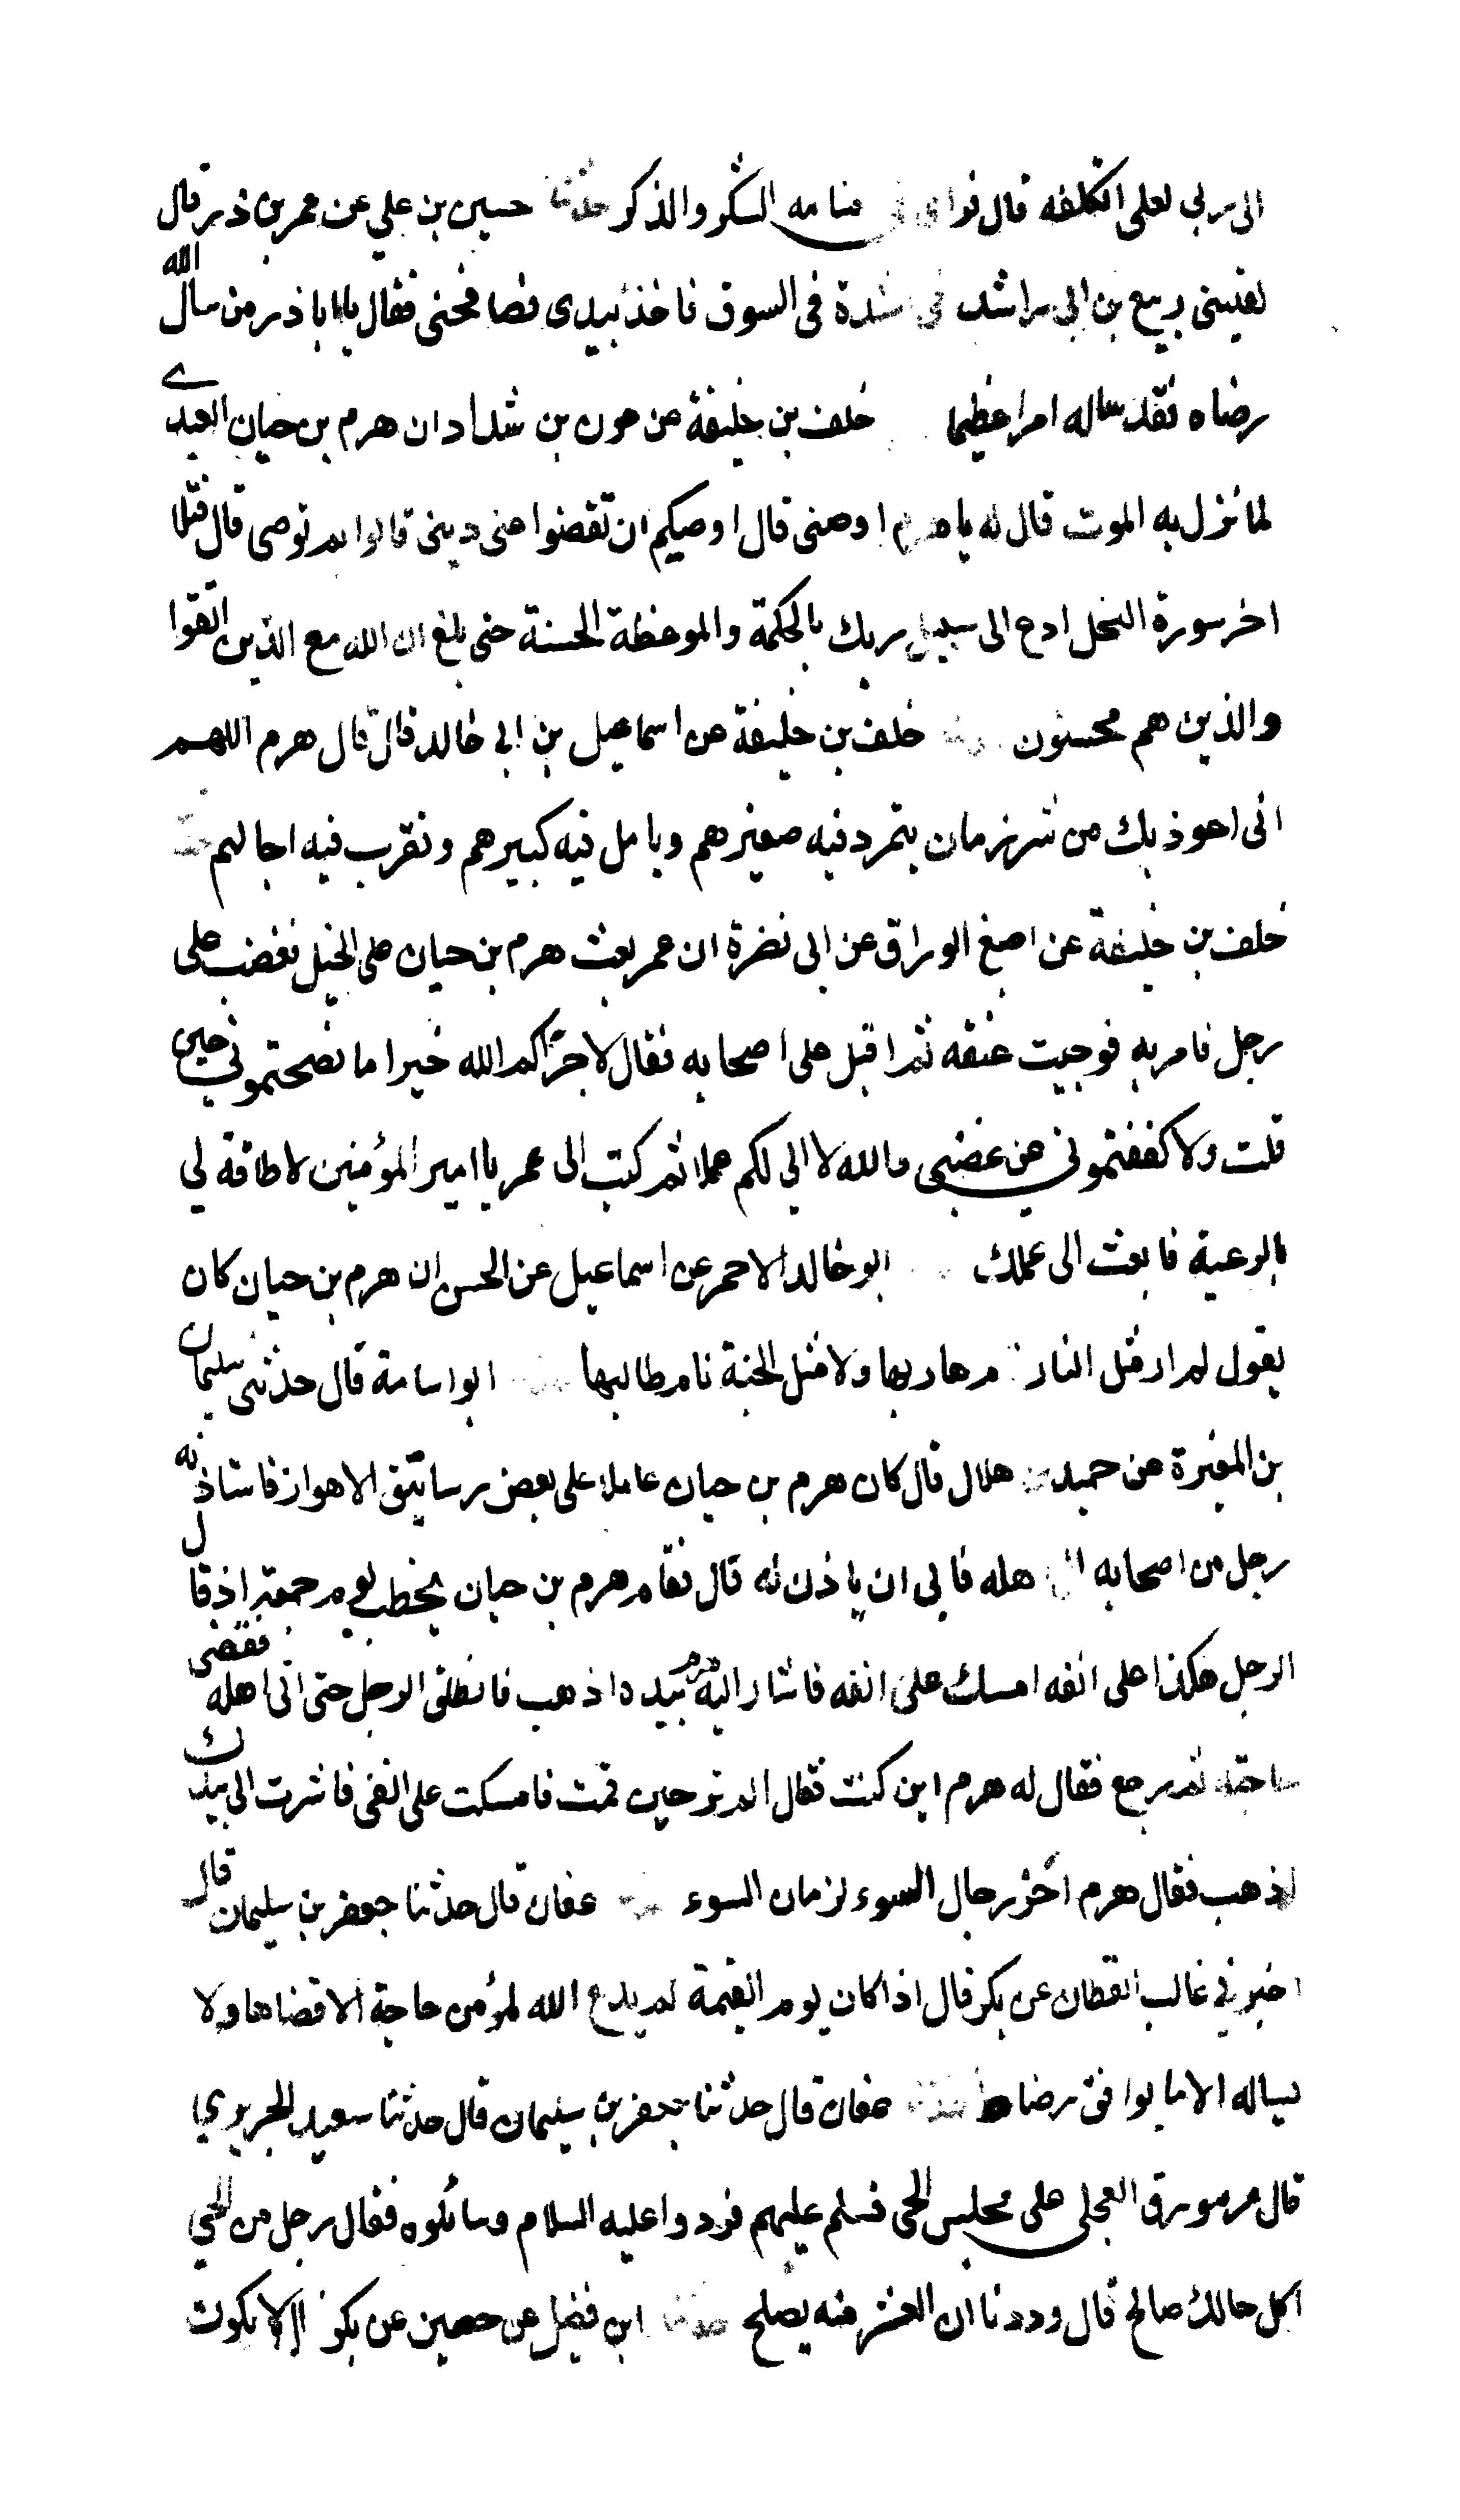 الى ربي لعلى اتكلفه قال فواى في منامه الشكر والذكر حدثنا حسين بن علي عن عمر بن ذر قال
لقيني ربيع بن ابي راشد في سدة في السوق فاخذ بيدي فصافحني فقال يابا ذر من سال الله
رضاه فقد ساله امرا عظيما خلف بن خليفة عن عون بن شداد ان هرم بن حيان العبدي
لما نزل به الموت قال له يا هرم اوصني قال اوصيكم ان تقضوا عني ديني قالوا بم توصي قال فتلا
اخر سورة النحل ادع الى سبيل ربك بالحكمة والموعظة الحسنة حتى بلغ ان الله مع الذين اتقوا
والذين هم محسنون خلف بن خليفة عن اسماعيل بن ابي خالد قال قال هرم اللهم
اني اعوذ بك من شر زمان يتمرد فيه صغيرهم ويامل فيه كبيرهم وتقرب فيه اجالهم حدثنا
خلف بن خليفة عن اصبغ الوراق عن ابي نضرة ان عمر بعث هرم بن حيان على الخيل فغضب على
رجل فامر به فوجيت عنقه ثم اقبل على اصحابه فقال لا جزاكم الله خيرا ما نصحتموني حين
قلت ولا كففتموني عن غضبي والله لا الي لكم عملا ثم كتب الى عمر يا امير المؤمنين لا طاقة لي
بالرعية فابعث الى عملك ابو خالد الاحمر عن اسماعيل عن الحسن ان هرم بن حيان كان
يقول لم ار مثل النار نام هاربها ولا مثل الجنة نام طالبها ابو اسامة قال حدثني سليمان
بن المغيرة عن حميد بن هلال قال كان هرم بن حيان عاملا على بعض رساتيق الاهواز فاستاذنه
رجل من اصحابه الى اهله فابى ان ياذن له قال فقام هرم بن حيان يخطب يوم جمعة اذ قال
الرجل هكذا على انفه امسك على انفه فاشار اليه هرم بيده اذهب فانطلق الرجل حتى اتى اهله فقضى
حاجته ثم رجع فقال له هرم اين كنت فقال الم تر حين قمت فامسكت على انفي فاشرت الي بيدك
اذهب فقال هرم اخر رجال السوء لزمان السوء حدثنا عفان قال حدثنا جعفر بن سليمان قال
اخبرني غالب القطان عن بكر قال اذا كان يوم القيمة لم يدع الله لمؤمن حاجة الا قضاها ولا
يساله الا ما يوافق رضاه حدثنا عفان قال حدثنا جعفر بن سليمان قال حدثنا سعيد الجريري
قال مر مورق العجلي على مجلس الحي فسلم عليهم فردوا عليه السلام وسائلوه فقال رجل من الحي
اكل حالك صالح قال وددنا ان العشر منه يصلح حدثنا ابن فضيل عن حصين عن بكر لا يكون